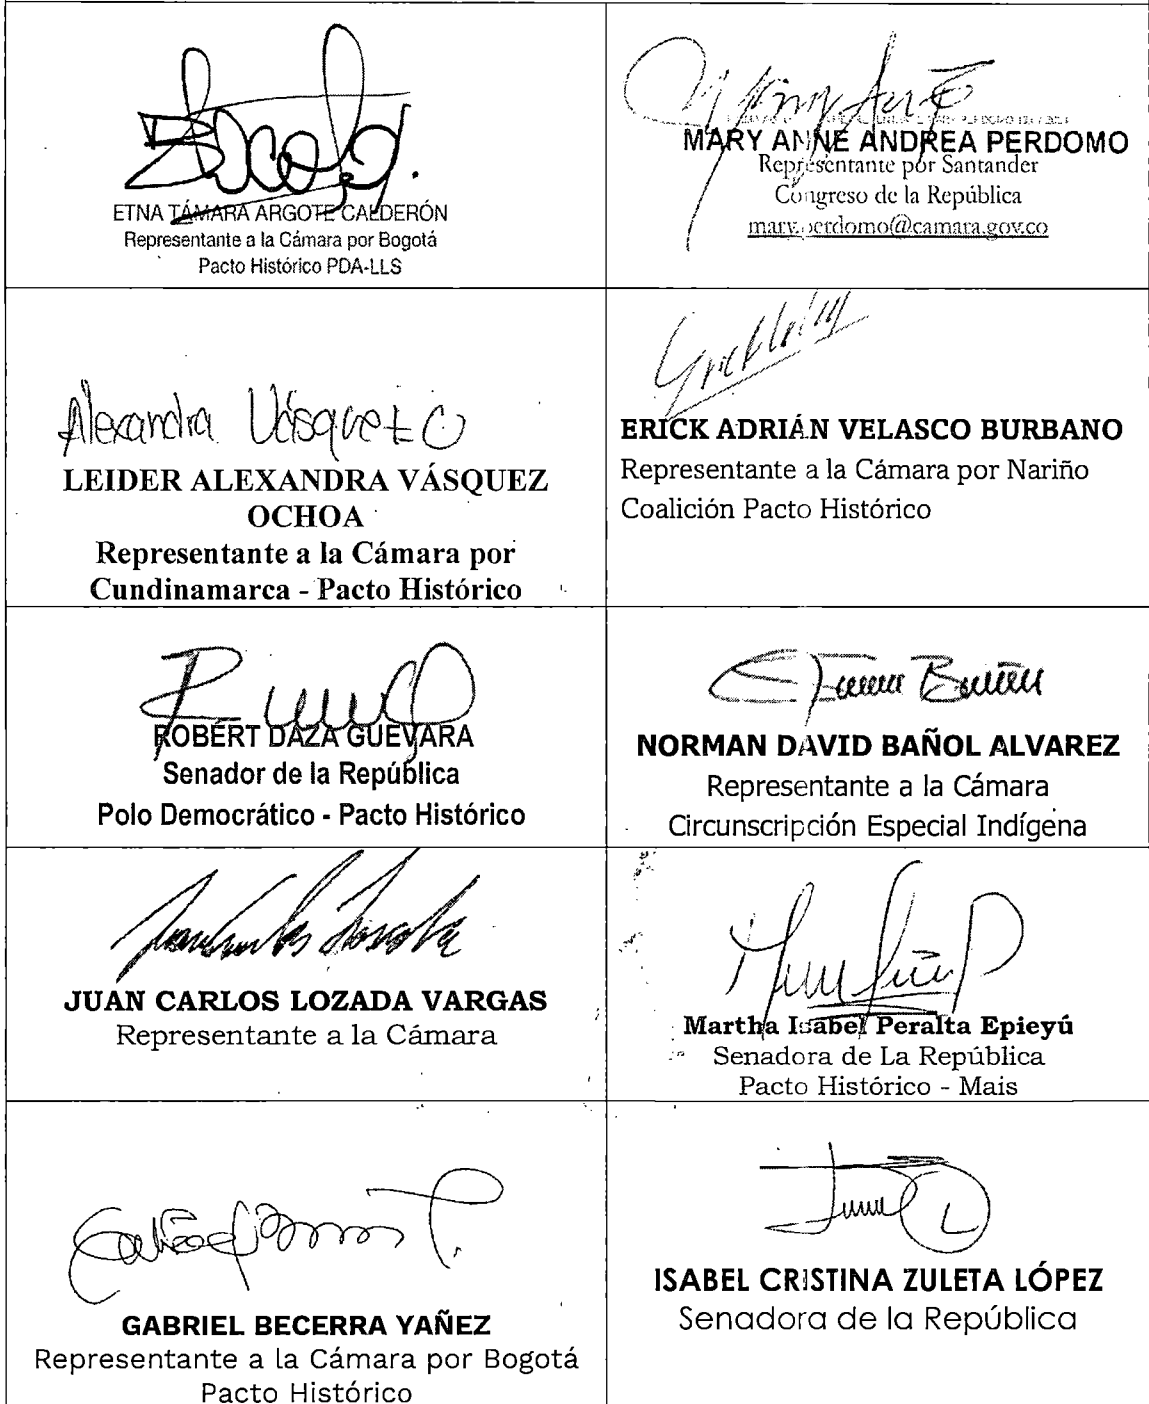 ETNA TÁMARA ARGOTE CALDERÓN
Representante a la Cámara por Bogotá
Pacto Histórico PDA-LLS
MARY ANNE ANDREA PERDOMO
Representante por Santander
Congreso de la República
mary.perdomo@camara.gov.co
Alexandra Vásquez O
LEIDER ALEXANDRA VÁSQUEZ
OCHOA
Representante a la Cámara por
Cundinamarca - Pacto Histórico
ERICK ADRIÁN VELASCO BURBANO
Representante a la Cámara por Nariño
Coalición Pacto Histórico
ROBERT DAZA GUEVARA
Senador de la República
Polo Democrático - Pacto Histórico
NORMAN DAVID BAÑOL ALVAREZ
Representante a la Cámara
Circunscripción Especial Indígena
JUAN CARLOS LOZADA VARGAS
Representante a la Cámara
Martha Isabel Peralta Epieyú
Senadora de La República
Pacto Histórico - Mais
GABRIEL BECERRA YAÑEZ
Representante a la Cámara por Bogotá
Pacto Histórico
ISABEL CRISTINA ZULETA LÓPEZ
Senadora de la República